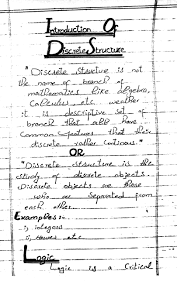 Introduction Of
Discrete Structure
"Discrete Structure is not
the name of branch of
mathematics like algebra,
Calculus etc. weather
it is descriptive set of
branch that all have
Common features that their
discrete rather continous."
OR
"Discrete structure is the
study of discrete objects.
Discrete objects are those
who are separated from
each other
Examples:-
1) integers
2) Houses etc
Logic
Logic is a Critical